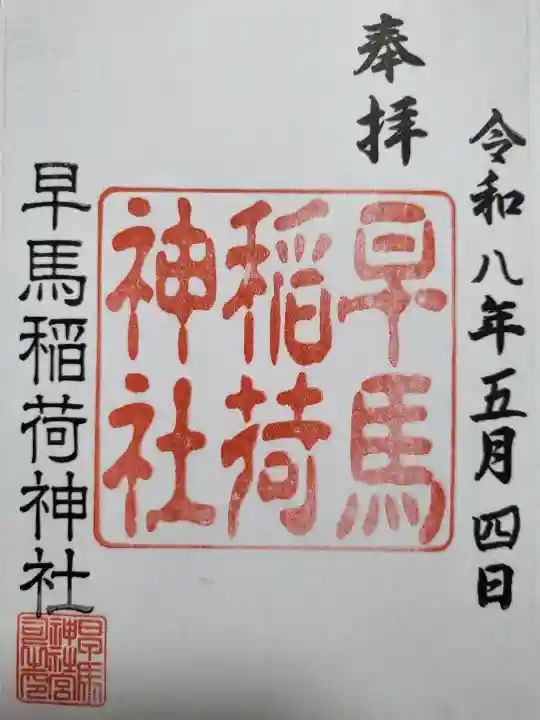 令和八年五月四日
奉拝
早馬
稲荷
神社
早馬稲荷神社
早馬
神社宮